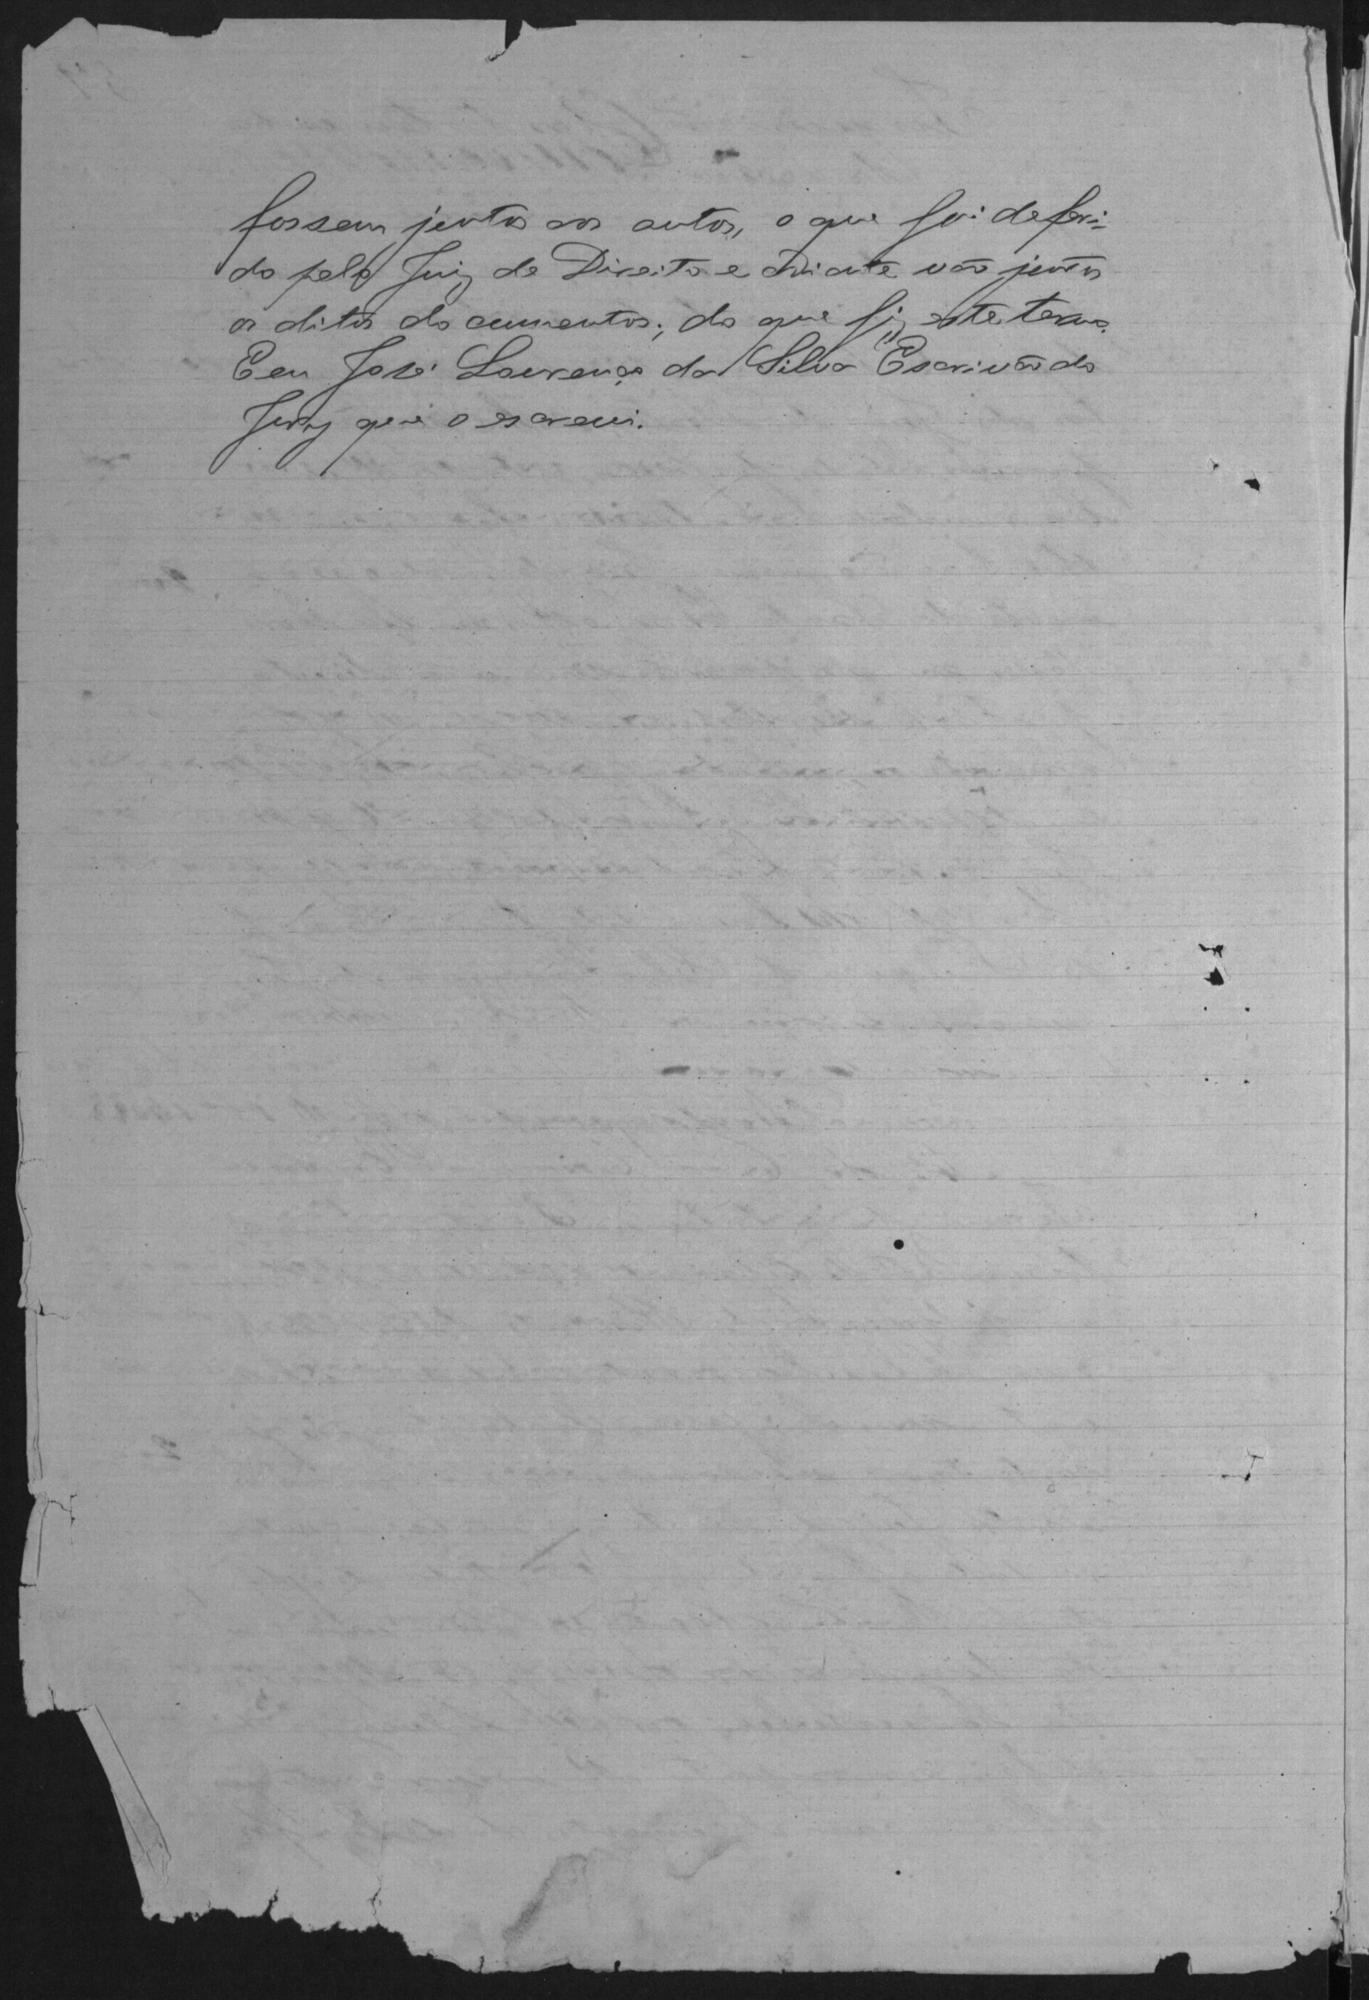 fossem juntos aos autos, o que foi deferi-
do pelo Juiz de Direito e adiante vão juntos
os ditos documentos; do que fiz este termo.
E eu José Lourenço da Silva Escrivão do
Jury que o escrevi.